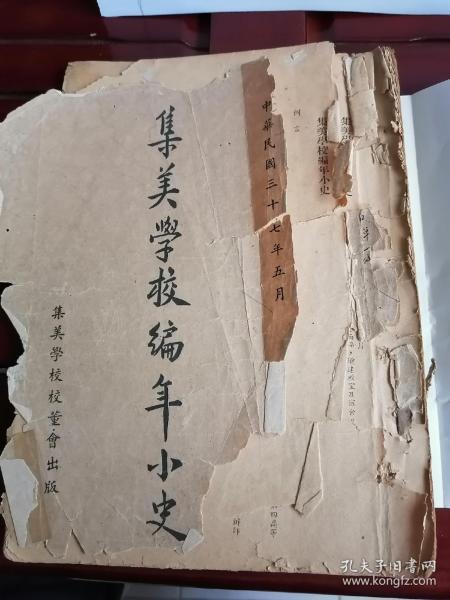 中華民國三十七年五月
集美學校編年小史
集美學校校董會出版
例言
集美學校編年小史
孔夫子旧书网
www.kongfz.com